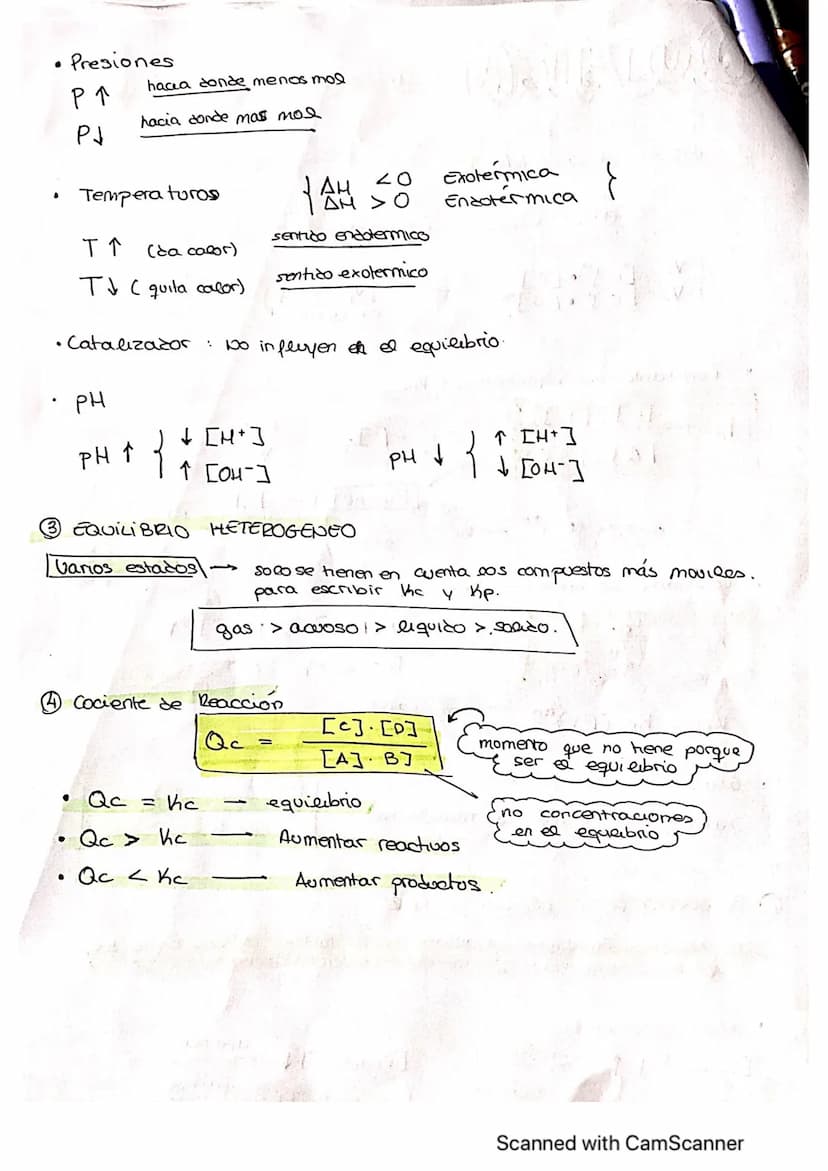 • Presiones
P ↑ hacia donde menos mol
P↓ hacia donde mas mol
• Temperaturas { ΔH < 0 Exotérmica }
ΔH > 0 Endotérmica
T ↑ (da calor) sentido endotermico
T↓ (quita calor) sentido exotermico
• Catalizador : no influyen en el equilibrio.
• pH
pH ↑ { ↓ [H+] pH ↓ { ↑ [H+]
↑ [OH-] ↓ [OH-]
③ EQUILIBRIO HETEROGENEO
Varios estados → solo se tienen en cuenta los compuestos más moviles.
para escribir Kc y Kp.
gas > acuoso > liquido > solido.
④ Cociente de Reacción
Qc = [C]·[D]
[A]·B]
momento que no tiene porque
ser el equilibrio
• Qc = Kc → equilibrio
no concentraciones
en el equilibrio
• Qc > Kc — Aumentar reactivos
• Qc < Kc — Aumentar productos.
Scanned with CamScanner